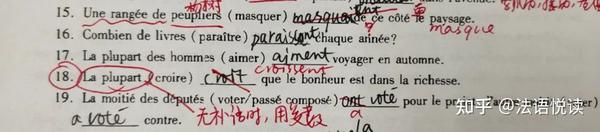 杨树
15. Une rangée de peupliers (masquer) masquaient de ce côté le paysage.
masque
16. Combien de livres (paraître) paraissent chaque année?
17. La plupart des hommes (aimer) aiment voyager en automne.
croissent
18. La plupart (croire) croit que le bonheur est dans la richesse.
19. La moitié des députés (voter/passé composé) ont voté pour le
a
a voté contre. 无补语时,用复数
知乎 @法语悦读